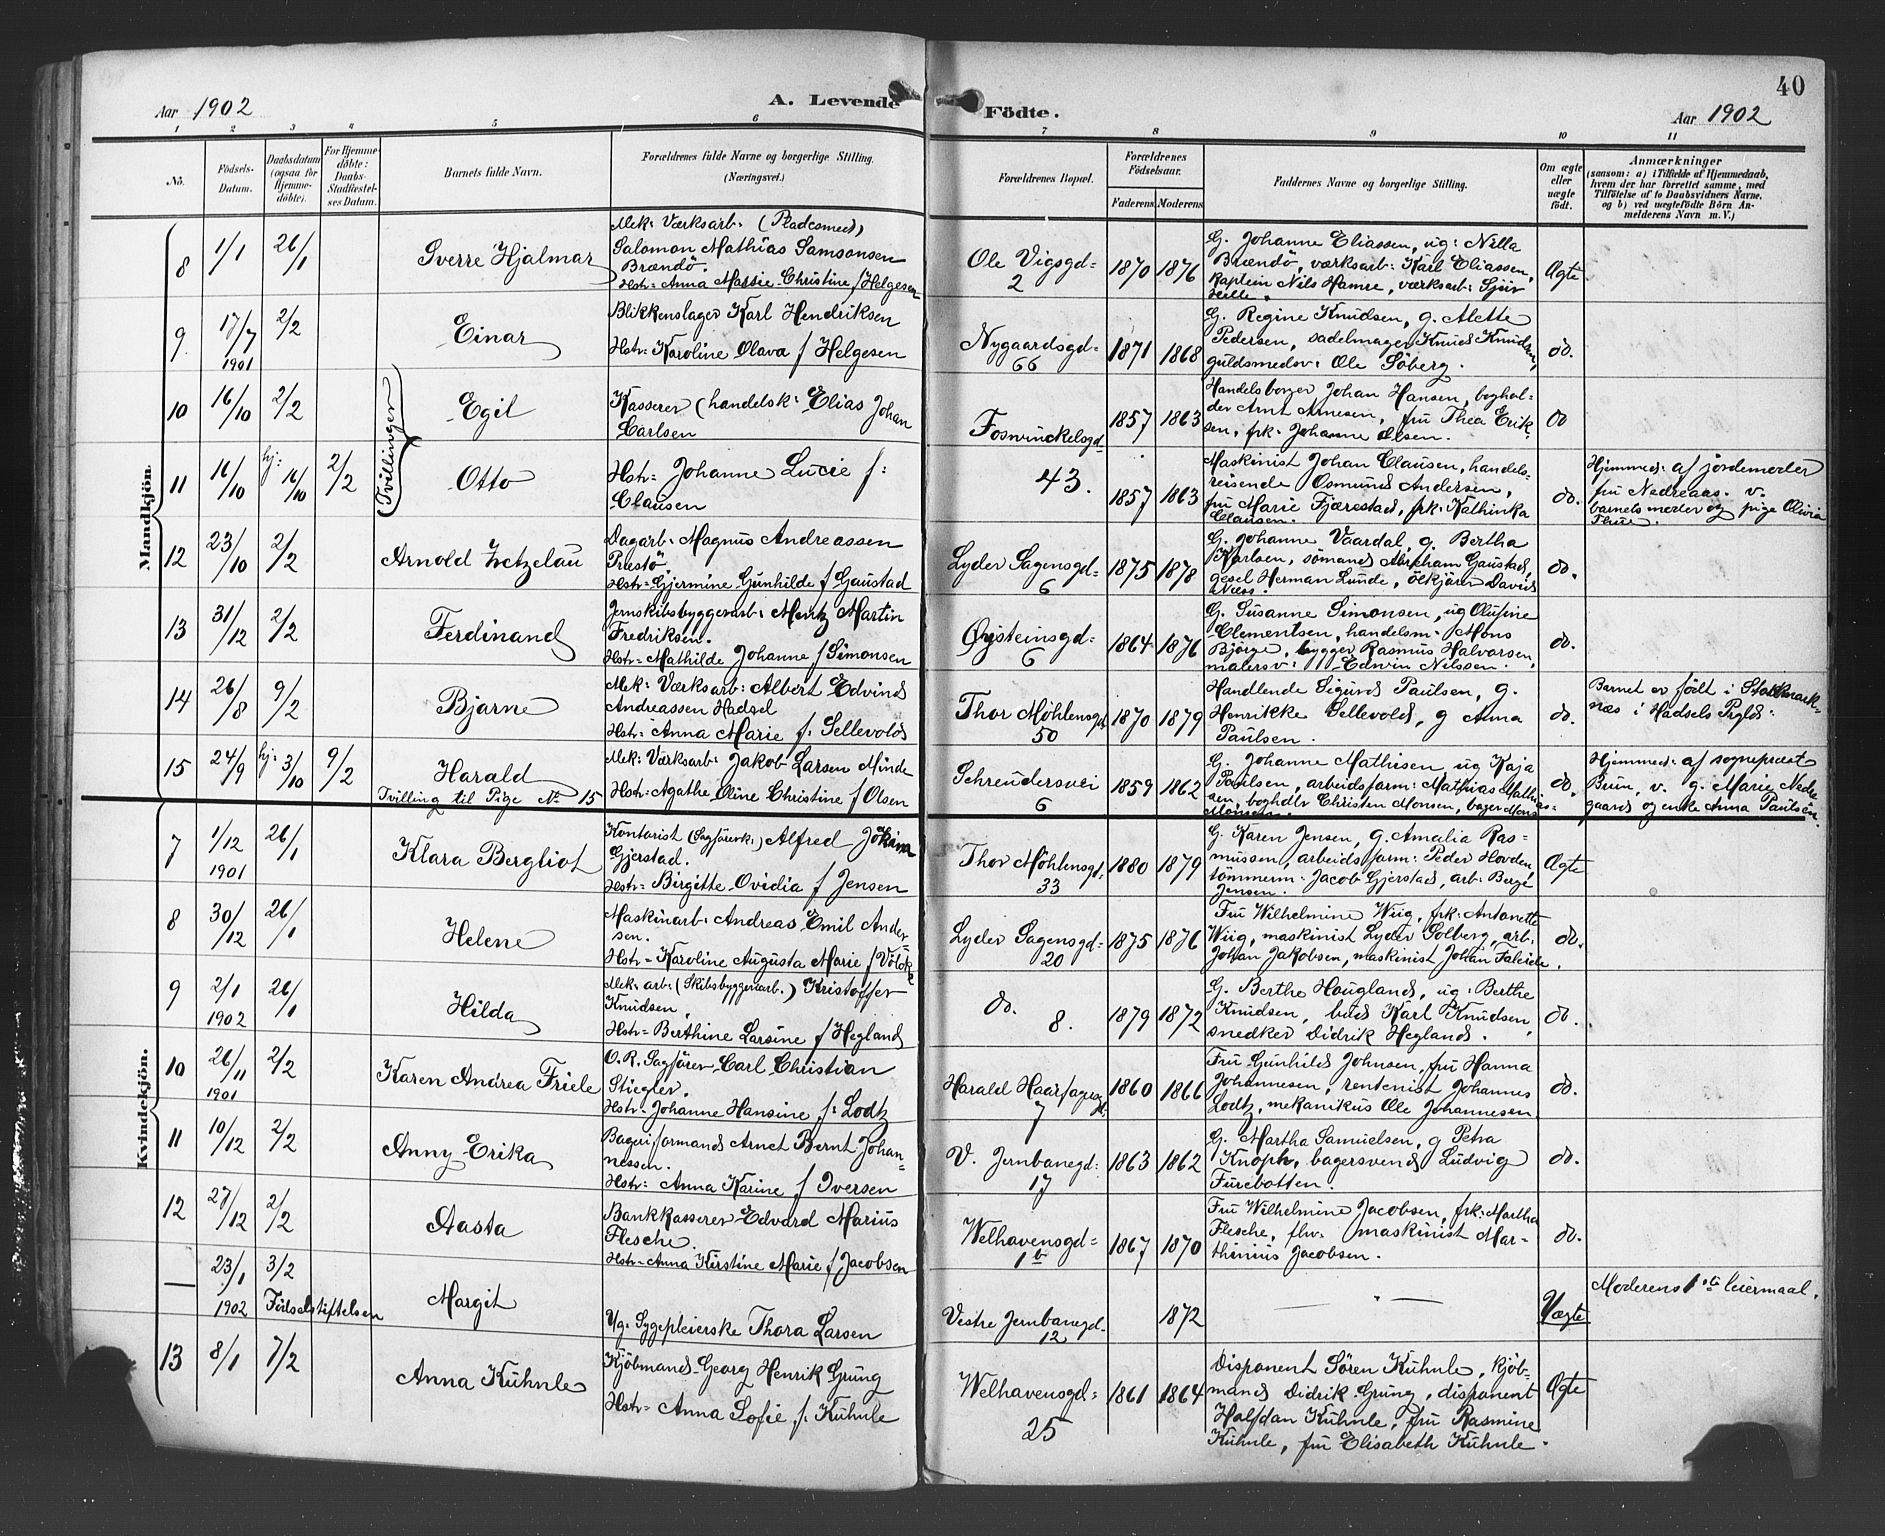 40
Aar 1902
A. Levende Födte.
Aar 1902
1 2 3 4 5 6 7 8 9 10 11
No.
Födsels-Datum.
Daabsdatum (ogsaa for Hjemmedöbte).
For Hjemmedöbte: Daabs-Stadfæstelses Datum.
Barnets fulde Navn.
Forældrenes fulde Navne og borgerlige Stilling. (Næringsvei.)
Forældrenes Bopæl.
Forældrenes Födselsaar.
Faderens Moderens
Faddernes Navne og borgerlige Stilling.
Om ægte eller uægte födt.
Anmærkninger
(saasom: a) i Tilfælde af Hjemmedaab, hvem der har forrettet samme, med Tilföielse af to Daabsvidners Navne, og b) ved uægtefödte Börn Anmelderens Navn m. V.)
Mandkjön.
8 1/1 26/1 Sverre Hjalmar
Mek: Værksarb: (Pladesmed)
Salomon Mathias Samsonsen
Brændö.
Hstr: Anna Massie Christine f Helgesen
Ole Vigsgd= 2
1870 1876
G. Johanne Eliassen, ug: Nilla
Brændö, værksarb: Karl Eliassen,
Kaptein Nils Hamre, værksarb: Sjur
Hille.
Ægte
9 17/7 1901 2/2 Einar
Blikkenslager Karl Hendriksen
Hstr: Karoline Olava f Helgesen
Nygaardsgd= 66
1871 1868
G. Regine Knudsen, g. Alette
Pedersen, sadelmager Knud Knudsen,
guldsmedsv: Ole Söberg.
do.
10 16/10 2/2 Egil
Tvillinger
Kasserer (handelsk: Elias Johan
Carlsen
Fosvinckelsgd
1857 1863
Handelsborger Johan Hansen, boghol-
der Arnt Arnesen, fru Thea Erik-
sen, frk: Johanne Olsen.
do
11 16/10 hj: 16/10 2/2 Otto
Hstr: Johanne Lucie f:
Clausen
43.
1857 1863
Maskinist Johan Clausen, handels-
reisende Osmund Andersen,
fru Marie Fjærestad, frk: Kathinka
Clausen.
do.
Hjemmed: af jordemoder
fru Nedreaas. v.
barnets moder og pige Olivia
12 23/10 2/2 Arnold Zetzelau
Dagarb: Magnus Andreassen
Præstö
Hstr: Gjermine Gunhilde f Gaustad
Lyder Sagensgd= 6
1875 1878
G. Johanne Vaardal, g. Bertha
Karlsen, sömand Abraham Gaustad,
gesel Herman Lunde, ölkjörer David
Næss.
do.
13 31/12 2/2 Ferdinand
Jernskibsbyggerarb: Mentz Martin
Fredriksen.
Hstr: Mathilde Johanne f Simonsen
Öysteinsgd= 6
1864 1876
G. Susanne Simonsen, ug Olufine
Clementsen, handelsm: Mons
Björge, bygger Rasmus Halvorsen,
malersv: Edwin Nilssen.
do.
14 26/8 9/2 Bjarne
Mek: Værksarb: Albert Edvind
Andreassen Hadsel
Hstr: Anna Marie f: Sellevold
Thor Möhlensgd 50
1870 1879
Handlende Sigurd Paulsen, g.
Henrikke Sellevold, g Anna
Paulsen.
do.
Barnet er født i Stokmark-
næs i Hadsels Prgld:
15 24/9 hj: 3/10 9/2 Harald
Tvilling til Pige No 15
Mek: Værksarb: Jakob Larsen Minde
Hstr: Agathe Oline Christine f Olsen
Schreudersvei 6
1859 1862
G. Johanne Mathisen ug Kaja
Paulsen, arbeidsform: Mathias Mathias-
sen, boghdlr Christen Monsen, bager Mons
Monsen.
do.
Hjemmed: af sogneprest
Brun, v. g. Marie Nedre
gaard og enke Anna Paulsen.
Kvindekjön.
7 1/12 1901 26/1 Klara Bergliot
Kontorist (Sagförerk:) Alfred Jokima
Gjerstad.
Hstr: Birgitte Ovidia f Jensen
Thor Möhlensgd. 33
1880 1879
G. Karen Jensen, g. Amalia Ras-
mussen, arbeidsform: Peder Hovden,
tömmerm: Jacob Gjerstad, arb: Berge
Jensen.
Ægte
8 30/12 26/1 Helene
Maskinarb: Andreas Emil Ander-
sen.
Hstr: Karoline Augusta Marie f Völcke
Lyder Sagensgd= 20
1875 1876
Fru Wilhelmine Wiig, frk: Antonette
Wiig, maskinist Lyder Solberg, arb:
Johan Jakobsen, maskinist Johan Faleide.
do.
9 2/1 1902 26/1 Hilda
Mek: arb: (Skibsbyggerarb:) Kristoffer
Knudsen.
Hstr: Berthine Larsine f Hegland
do. 8.
1879 1872
G. Berthe Hougland, ug: Berthe
Knudsen, bud Karl Knudsen,
snedker Didrik Hegland.
do.
10 26/11 1901 2/2 Karen Andrea Friele
O. R. Sagförer Carl Christian
Stiegler.
Hstr: Johanne Hansine f: Lodtz
Harald Haarfagesgd. 7
1860 1866
Fru Gunhild Johnsen, fru Hanna
Johannesen, rentenist Johannes
Lodtz, mekanikus Ole Johannesen
do.
11 10/12 2/2 Anny Erika
Bageriformand Arnet Bernt Johan-
nessen.
Hstr: Anna Karine f Iversen
V. Jernbanegd: 17
1863 1862
G. Martha Samuelsen, g Petra
Knoph, bagersvend Ludvig
Furebotten.
do.
12 27/12 2/2 Aasta
Bankkasserer Edvard Marius
Flesche.
Hstr: Anna Kirstine Marie f Jacobsen
Welhavensgd= 1b
1867 1870
Fru Wilhelmine Jacobsen, frk: Martha
Flesche, fhv: maskinist Mar-
thinius Jacobsen.
do.
— 23/1 1902 3/2 Födselsstiftelsen Margit
Ug: Sygepleierske Thora Larsen
Vestre Jernbanegd. 12
1872
— " —
Uægte
Moderens 1ste leiermaal.
13 8/1 7/2 Anna Kuhnle
Kjöbmand Georg Henrik Grung
Hstr: Anna Sofie f: Kuhnle
Welhavensgd= 25
1861 1864
Disponent Sören Kuhnle, kjöb-
mand Didrik Grung, disponent
Halfdan Kuhnle, fru Rasmine
Kuhnle, fru Elisabeth Kuhnle.
Ægte